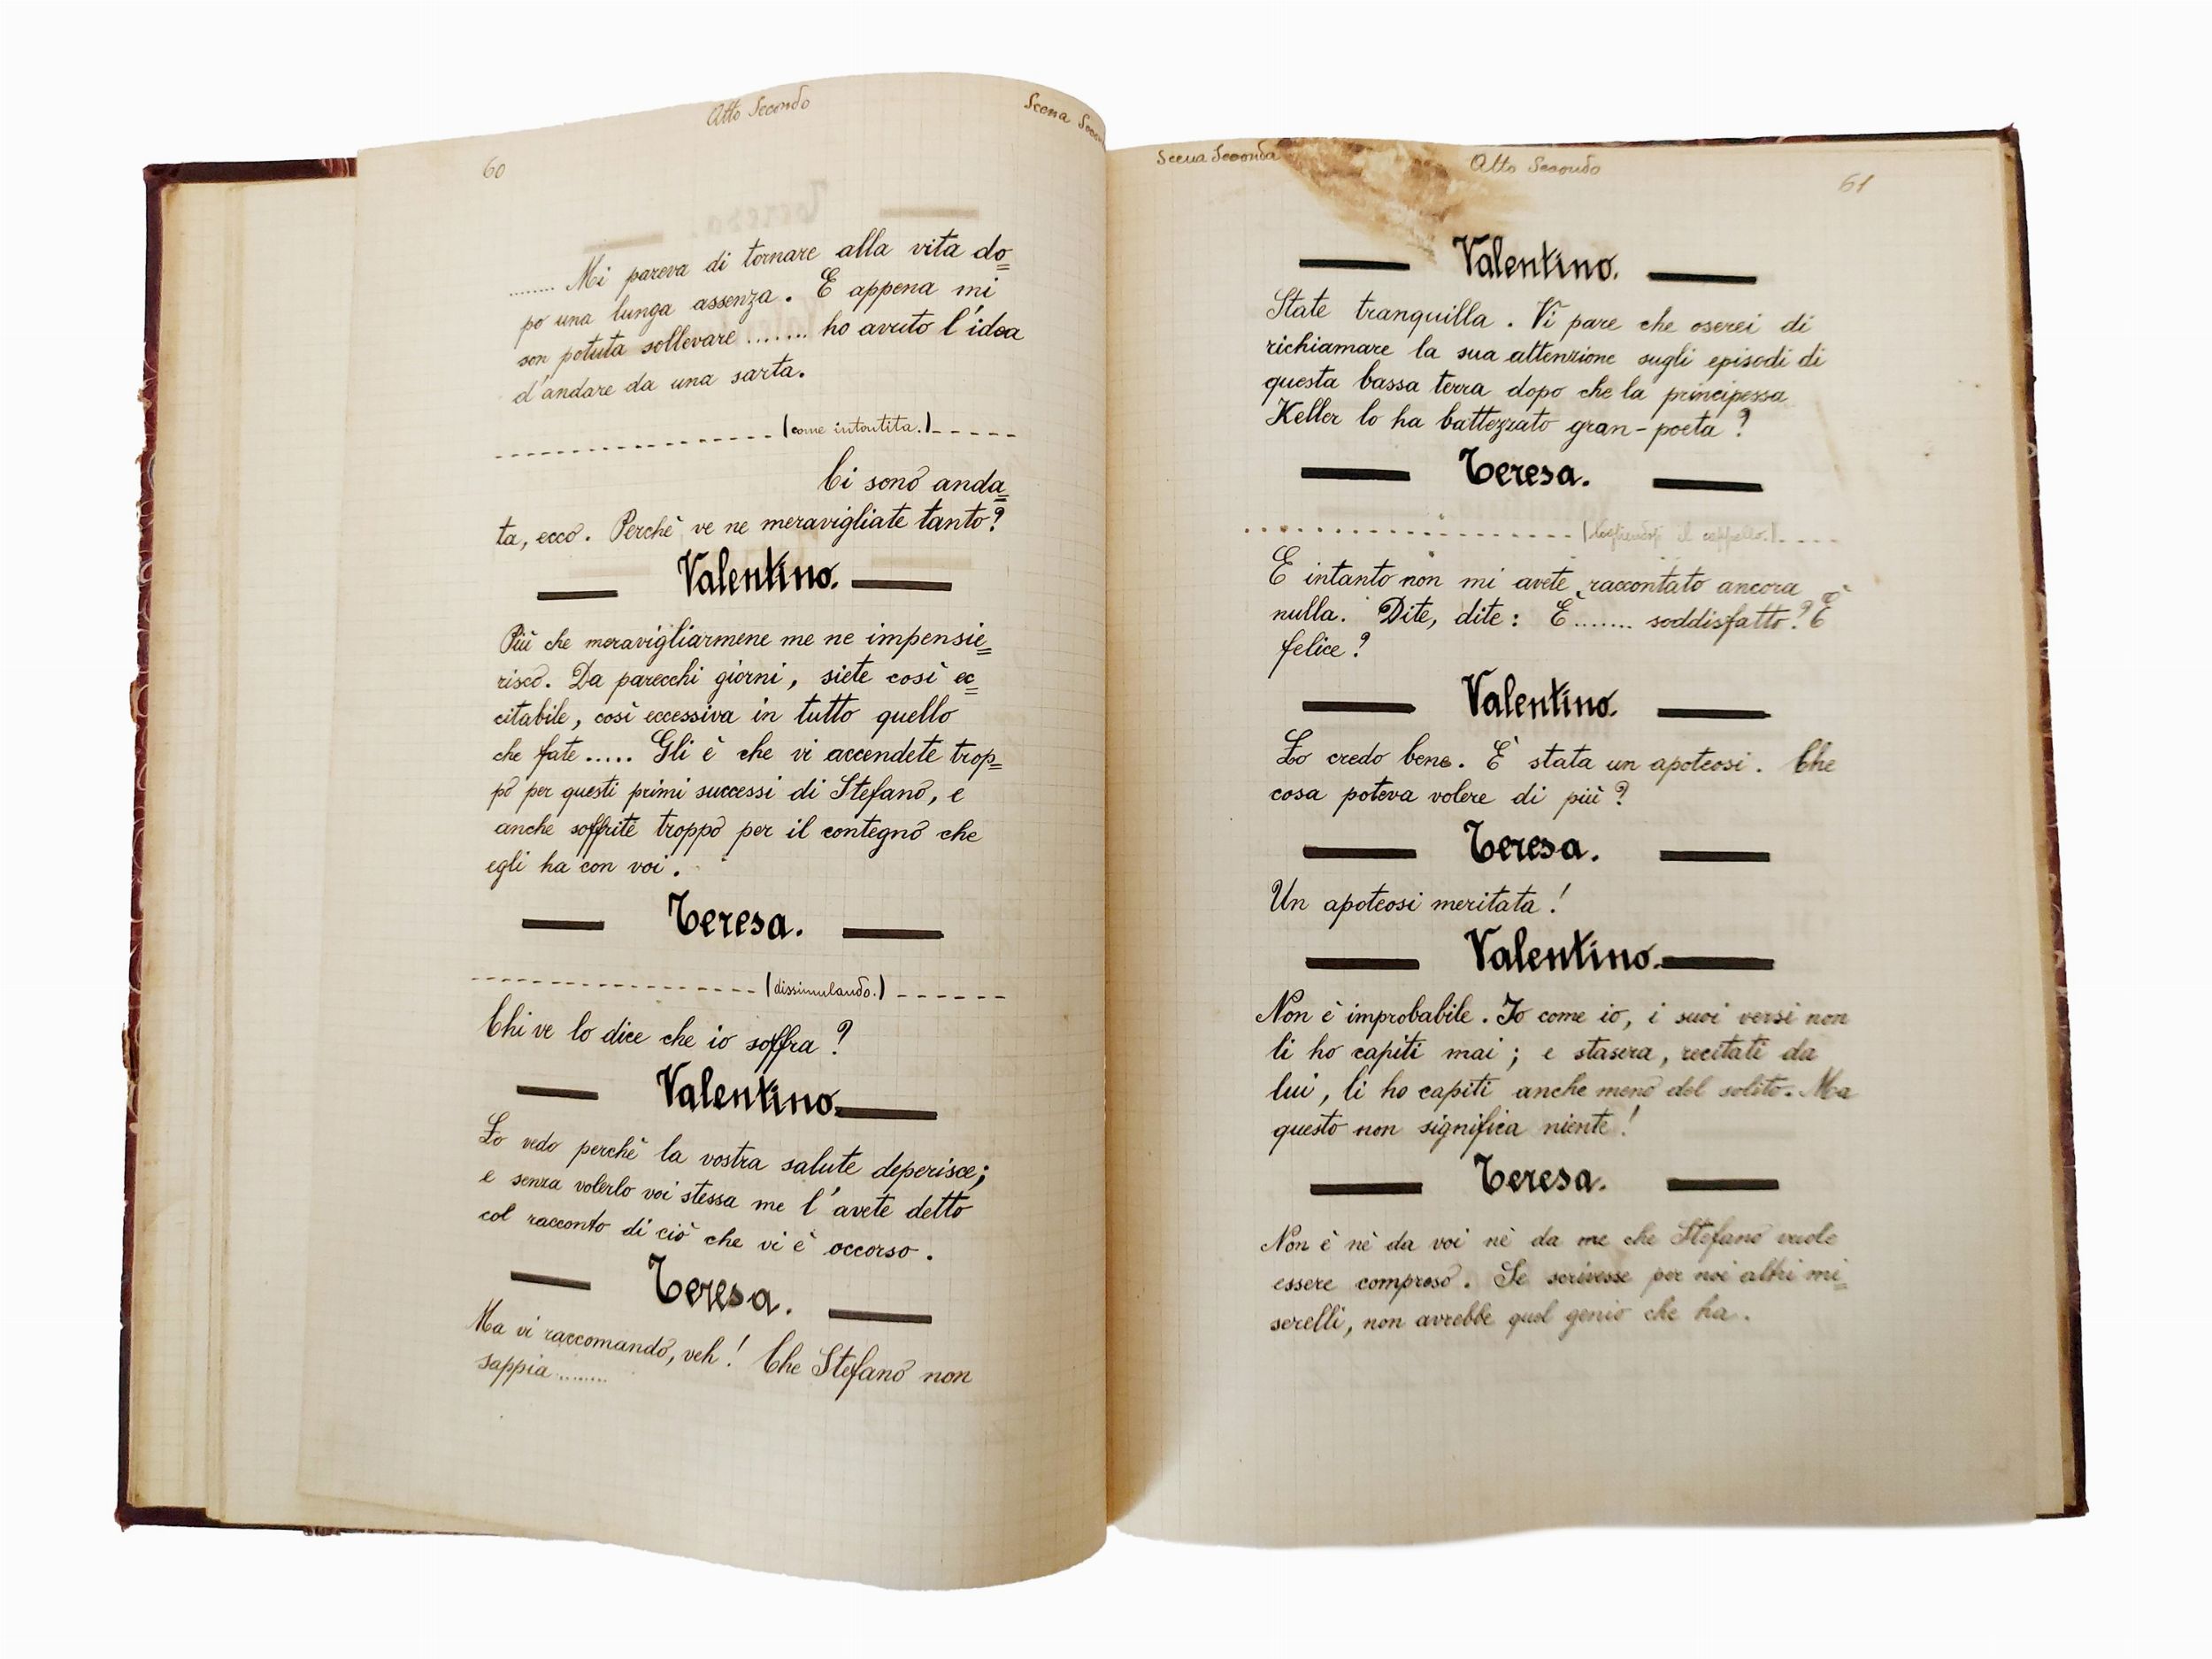 60
Atto Secondo
Scena Secon
........ Mi pareva di tornare alla vita do=
po una lunga assenza. E appena mi
son potuta sollevare ....... ho avuto l'idea
d'andare da una sarta.
(come intontita.)
Ci sono anda=
ta, ecco. Perchè ve ne meravigliate tanto?
Valentino.
Più che meravigliarmene me ne impensie=
risco. Da parecchi giorni, siete così ec=
citabile, così eccessiva in tutto quello
che fate ..... Gli è che vi accendete trop=
po per questi primi successi di Stefano, e
anche soffrite troppo per il contegno che
egli ha con voi.
Teresa.
(dissimulando.)
Chi ve lo dice che io soffra?
Valentino.
Lo vedo perchè la vostra salute deperisce;
e senza volerlo voi stessa me l'avete detto
col racconto di ciò che vi è occorso.
Teresa.
Ma vi raccomando, veh! Che Stefano non
sappia .........
Scena Seconda
Atto Secondo
61
Valentino.
State tranquilla. Vi pare che oserei di
richiamare la sua attenzione sugli episodi di
questa bassa terra dopo che la principessa
Keller lo ha battezzato gran-poeta?
Teresa.
(togliendosi il cappello.)
E intanto non mi avete raccontato ancora
nulla. Dite, dite: È ....... soddisfatto? È
felice?
Valentino.
Lo credo bene. È stata un apoteosi. Che
cosa poteva volere di più?
Teresa.
Un apoteosi meritata!
Valentino.
Non è improbabile. Io come io, i suoi versi non
li ho capiti mai; e stasera, recitati da
lui, li ho capiti anche meno del solito. Ma
questo non significa niente!
Teresa.
Non è nè da voi nè da me che Stefano vuole
essere compreso. Se scrivesse per noi altri mi=
serelli, non avrebbe quel genio che ha.